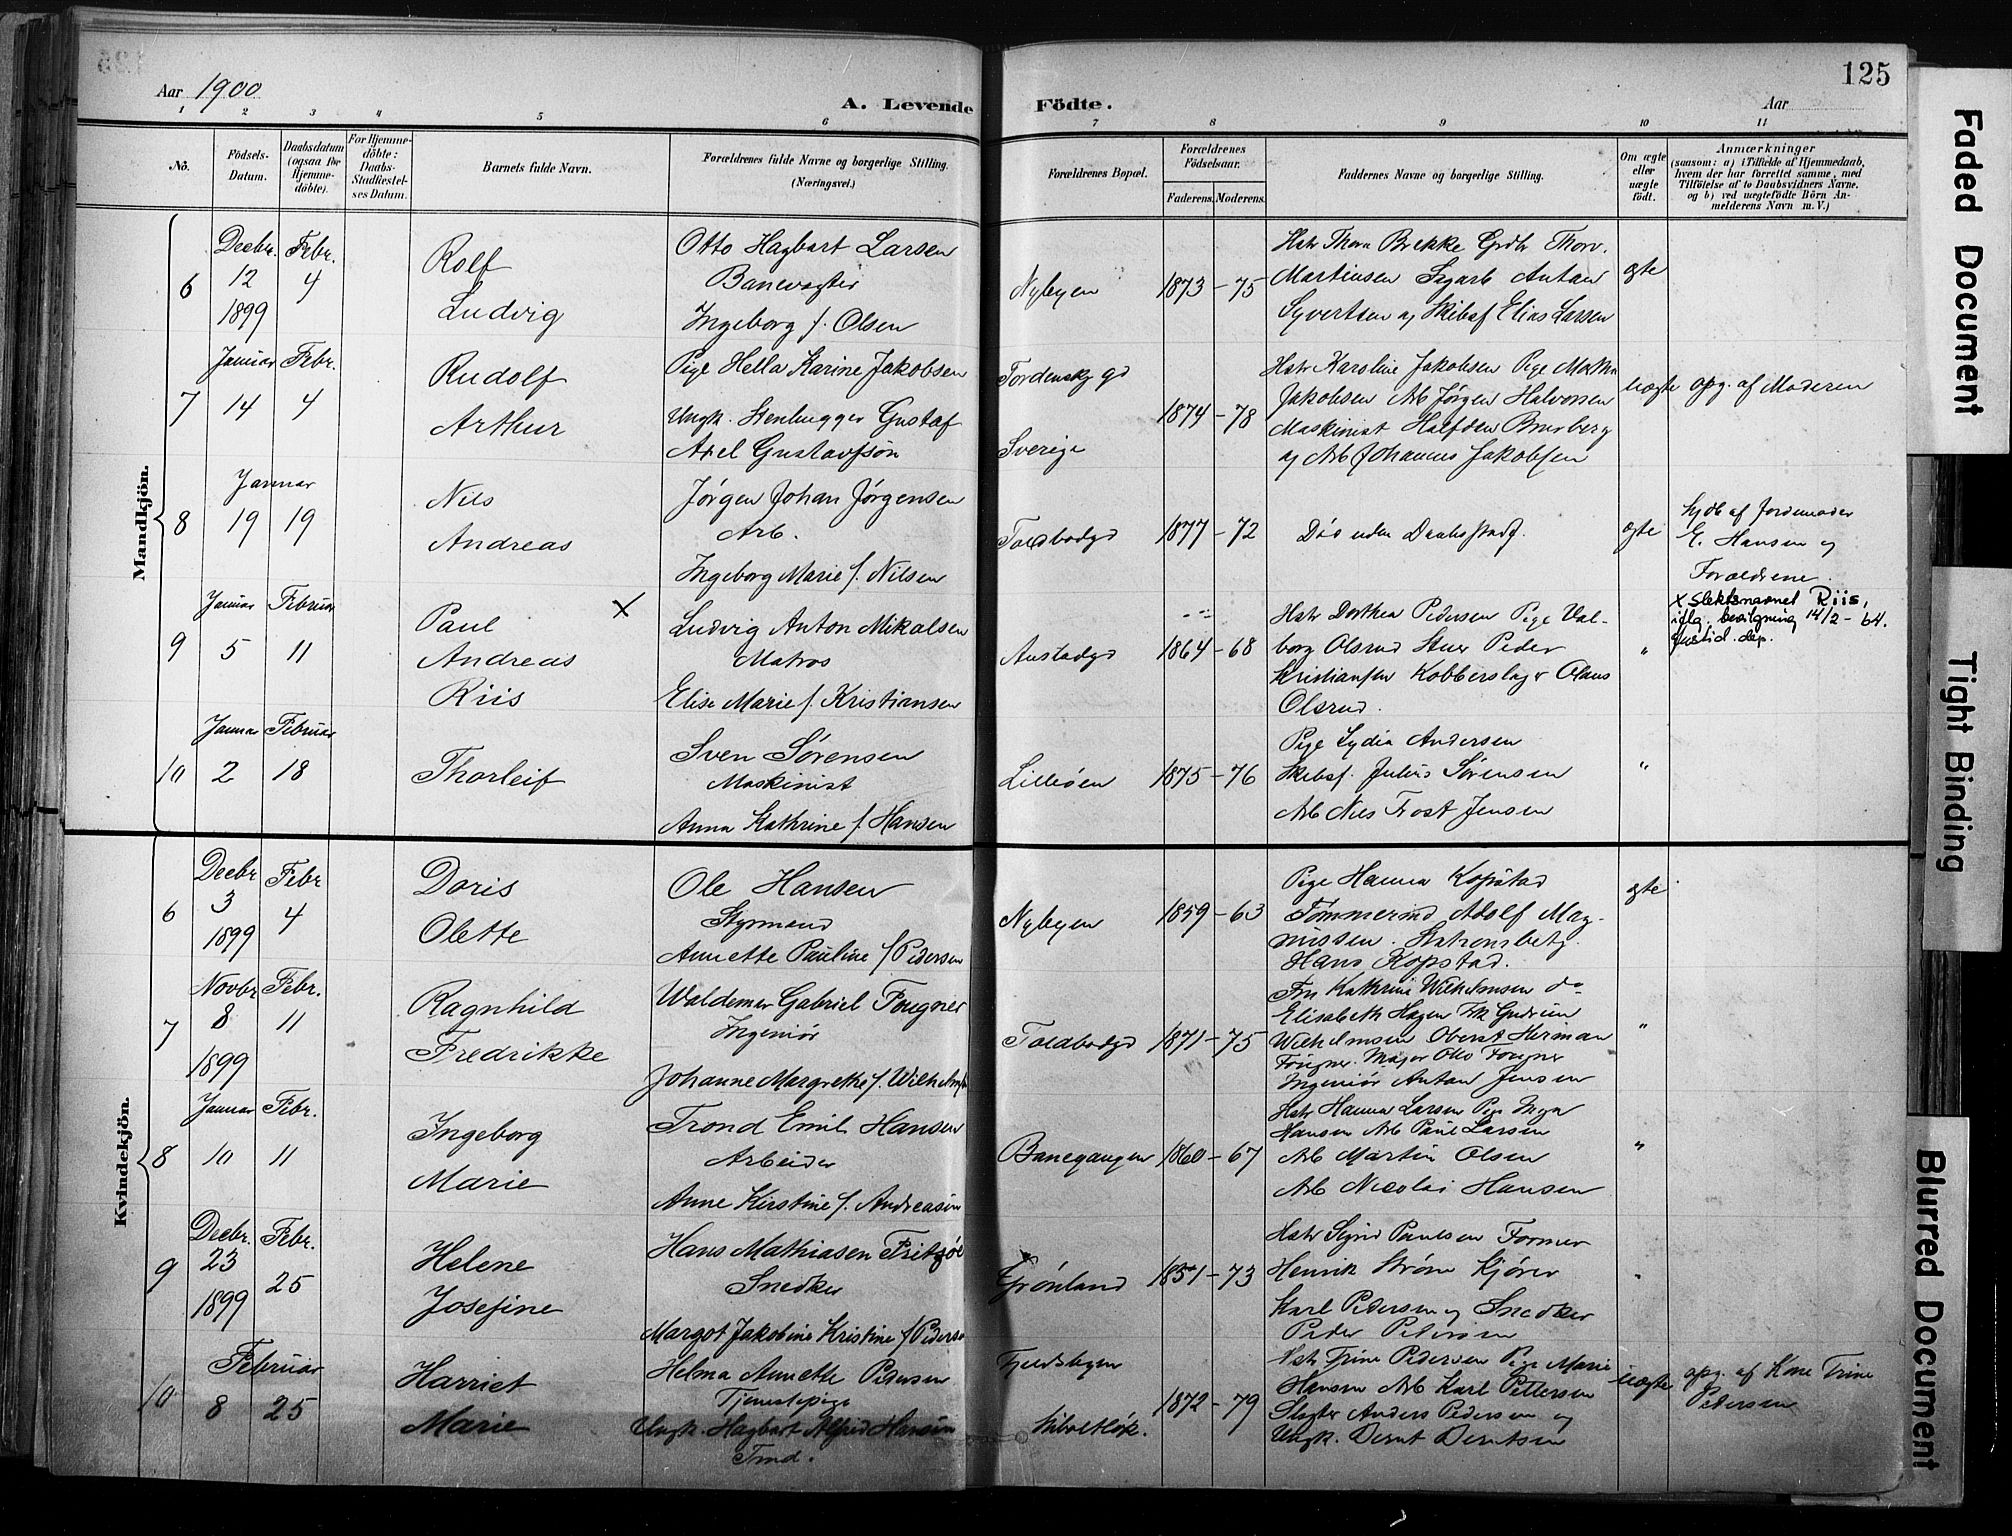 125
Aar 1900
A. Levende Födte.
Aar
1 2 3 4 5 6 7 8 9 10 11
No.
Födsels-Datum.
Daabsdatum (ogsaa for Hjemmedöbte).
For Hjemmedöbte: Daabs-Stadfæstelses Datum.
Barnets fulde Navn.
Forældrenes fulde Navne og borgerlige Stilling. (Næringsvei.)
Forældrenes Bopæl.
Forældrenes Födselsaar.
Faderens. Moderens.
Faddernes Navne og borgerlige Stilling.
Om ægte eller uægte födt.
Anmærkninger
(saasom: a) i Tilfælde af Hjemmedaab,
hvem der har forrettet samme, med
Tilföielse af to Daabsvidners Navne,
og b) ved uægtefödte Börn An-
melderens Navn m. V.)
Mandkjön.
6
Decbr. 12 1899
Febr. 4
Rolf
Ludvig
Otto Hagbart Larsen
Banevogter
Ingeborg f. Olsen
Nybyen
1873 - 75
Hstr Thora Brekke Grdbr Thorv.
Martinsen Sagarb Anton
Syvertsen og Skibsf Elias Larsen
ægte
7
Januar 14
Febr. 4
Rudolf
Arthur
Pige Hella Karine Jakobsen
Ungk. Stenhugger Gustaf
Axel Gustavfsön
Tordenskj gd
Sverige
1874 - 78
Hstr Karoline Jakobsen Pige
Jakobsen Arb Jørgen Halvorsen
Maskinist Halfdan
og Arb Johannes Jakobsen
uægte
opg. af Moderen
8
Januar 19 19
Nils
Andreas
Jørgen Johan Jørgensen
Arb.
Ingeborg Marie f. Nilsen
Toldbodgd
1877 - 72
Død uden Daabsstadf.
ægte
hjdb af Jordemoder
E. Hansen og
Forældrene.
9
Januar 5
Februar 11
Paul x
Andreas
Riis
Ludvig Anton Mikalsen
Matros
Elise Marie f. Kristiansen
1864 - 68
Hstr Dorthea Pedersen Pige Val-
borg Olsrud Stuer Peder
Kristiansen Kobberslager Olaus
Olsrud.
"
x Slektsnavnet Riis,
iflg. bevilgning 14/2 - 64.
justid. dep.
10
Januar 2
Februar 18
Thorleif
Sven Sørensen
Maskinist
Anna Kathrine f. Hansen
Lilleøen
1875 - 76
Pige Lydia Andersen
Skibsf. Julius Sørensen
Arb Nils Frost Jensen
"
Kvindekjön.
6
Decbr 3 1899
Febr 4
Doris
Olette
Ole Hansen
Styrmand
Annette Pauline f Pedersen
Nybyen
1859 - 63
Pige Hanna Kopstad
Tømmermd Adolf Mag-
nussen. Stationsbetj.
Hans Kopstad.
ægte
7
Novbr 8 1899
Febr. 11
Ragnhild
Fredrikke
Waldemar Gabriel Fougner
Ingeniør
Johanne Margrethe f. Wilhelms
Toldbodgd
1871 - 75
Fru Kathrine Wilhelmsen do
Elisabeth Hagen Frk Gudrun
Wilhelmsen Oberst Herman
Fougner. Major Otto Fougner
Ingeniør Anton Jensen
"
8
Januar 10
Febr. 11
Ingeborg
Marie
Trond Emil Hansen
Arbeider
Anne Kirstine f. Andreasen
Banegangen
1860 - 67
Hstr Hanna Larsen Pige Inga
Hansen Arb Paul Larsen
Arb Martin Olsen
Arb Nicolai Hansen
"
9
Decbr. 23 1899
Febr. 25
Helene
Josefine
Hans Mathiasen
Snedker
Margot Jakobine Kristine f Peders
Grönland
1851 - 73
Hstr Sigrid Paulsen Former
Henrik Strøm Kjører
Karl Petersen og Snedker
Peder Petersen
"
10
Februar 8 25
Harriet
Marie
Helma Annette Petersen
Tjenestepige
Ungk. Hagbart Alfred Hansen
Tmd.
Fjeldsbyen
1872 - 79
Hstr Trine Pedersen Pige Marie
Hansen Arb Karl Pettersen
Slagter Anders Pedersen og
Ungk. Bernt Berntsen
uægte
opg. af Kone Trine
Petersen
Faded Document
Tight Binding
Blurred Document